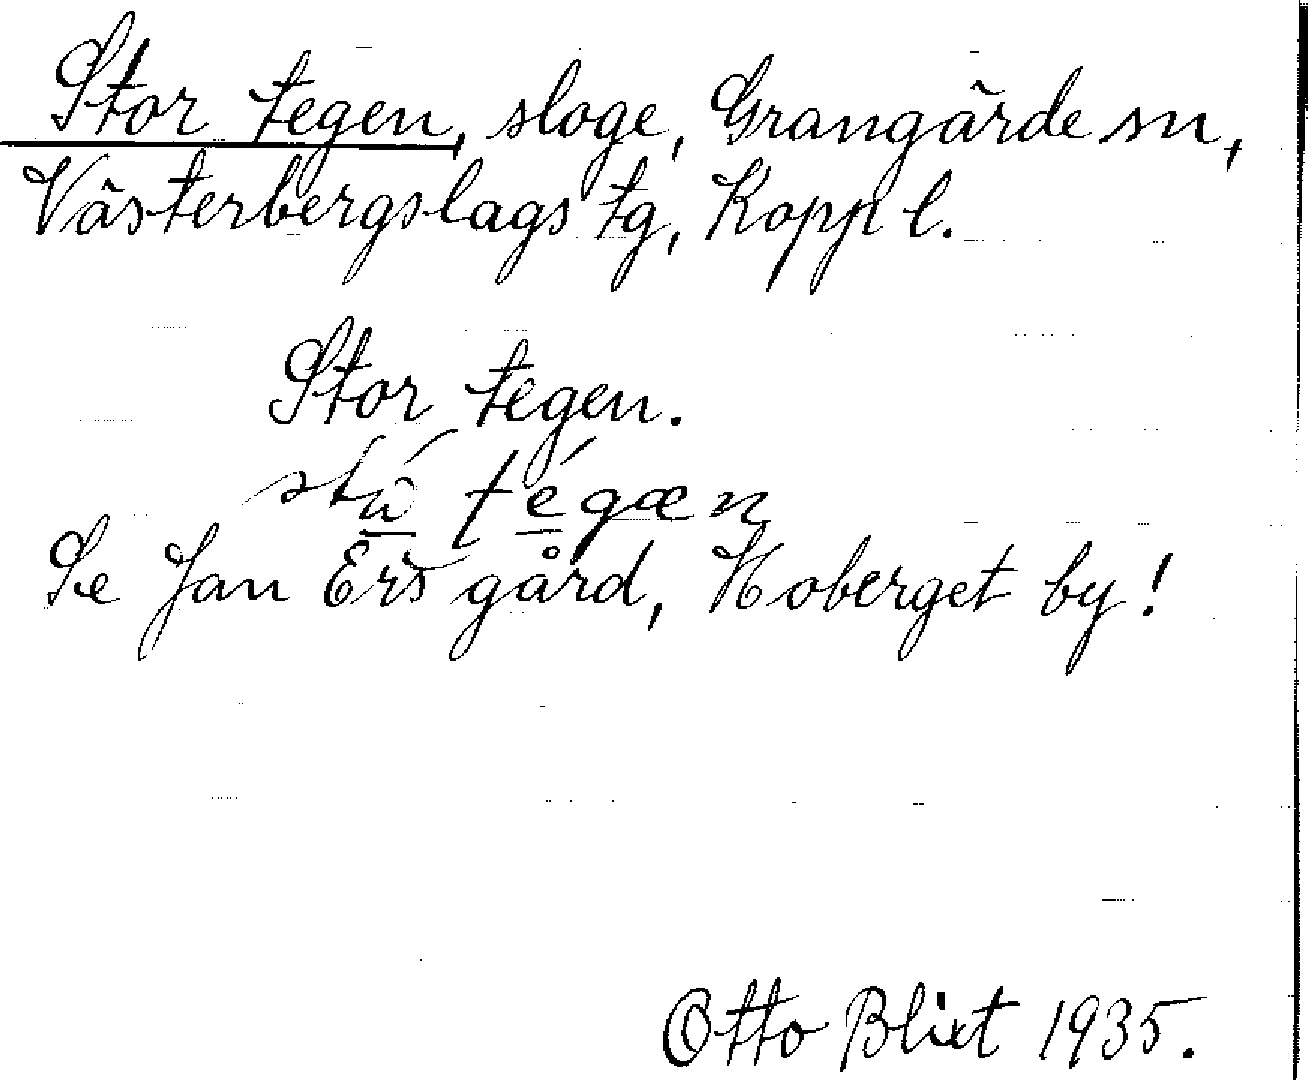 Stor tegen, sloge, Grangärde sn,
Västerbergslags tg, Kopp l.
Stor tegen.
Se Jan Ers gård, Hoberget by!
Otto Blixt 1935.